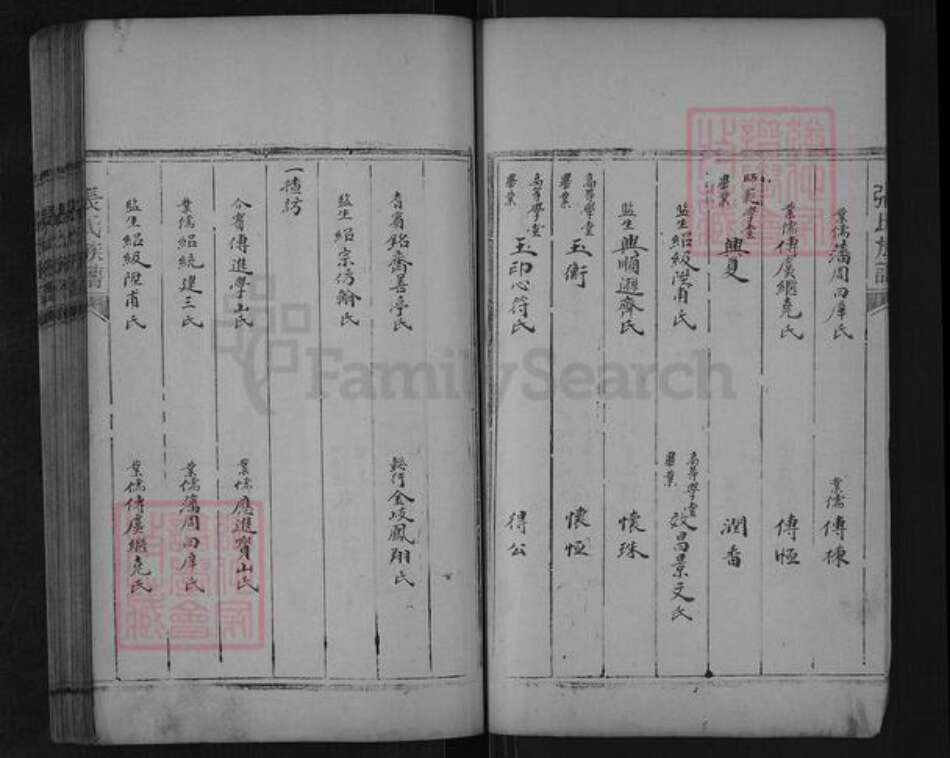 張氏族譜
業儒藩周四庠氏
業儒傅棟
業儒傅虞繼堯氏
傅恒
師範學堂畢業興夏
潤畬
監生紹級陞甫氏
高等學堂畢業效昌景文氏
監生興順遜齊氏
懷珠
高等學堂畢業玉衡
懷恒
高等學堂畢業玉印心符氏
得公
耆賓銘齋善亭氏
金岐鳳翔氏
監生紹宗仿翰氏
一擡紡
介賓傅進學山氏
業儒應進寶山氏
業儒紹統建三氏
業儒藩周四庠氏
監生紹級陞甫氏
業儒傅虞繼堯氏
張氏族譜
FamilySearch